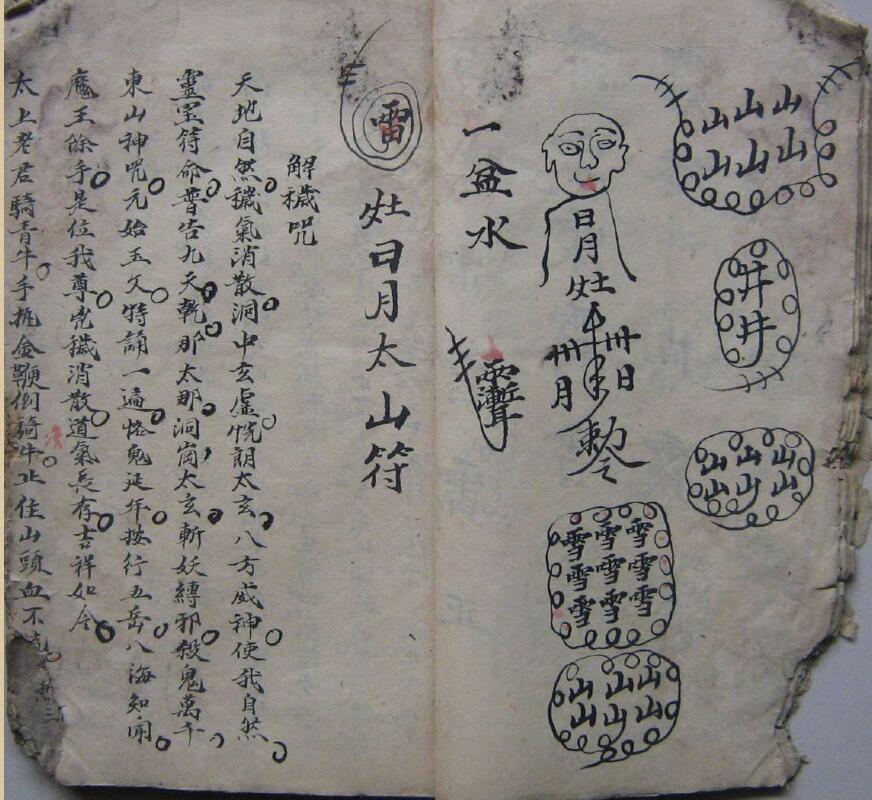 山山山
山山山
井
井
山山山
山山山
日月灶
卅日
卅月
敕令
雪雪雪
雪雪雪
雪雪雪
山山山
山山山
一盆水
雷
灶日月太山符
解穢咒
天地自然穢氣消散洞中玄虛恍朗太玄八方威神使我自然
靈宝符命普告九天乾那太那洞崗太玄斬妖縛邪殺鬼萬千
東山神咒元始玉文特誦一遍怯鬼延年按行五岳八海知聞
魔王除手是位我尊兇穢消散道氣長存吉祥如令
太上老君騎青牛手執金鞭倒騎牛止住山頭血不